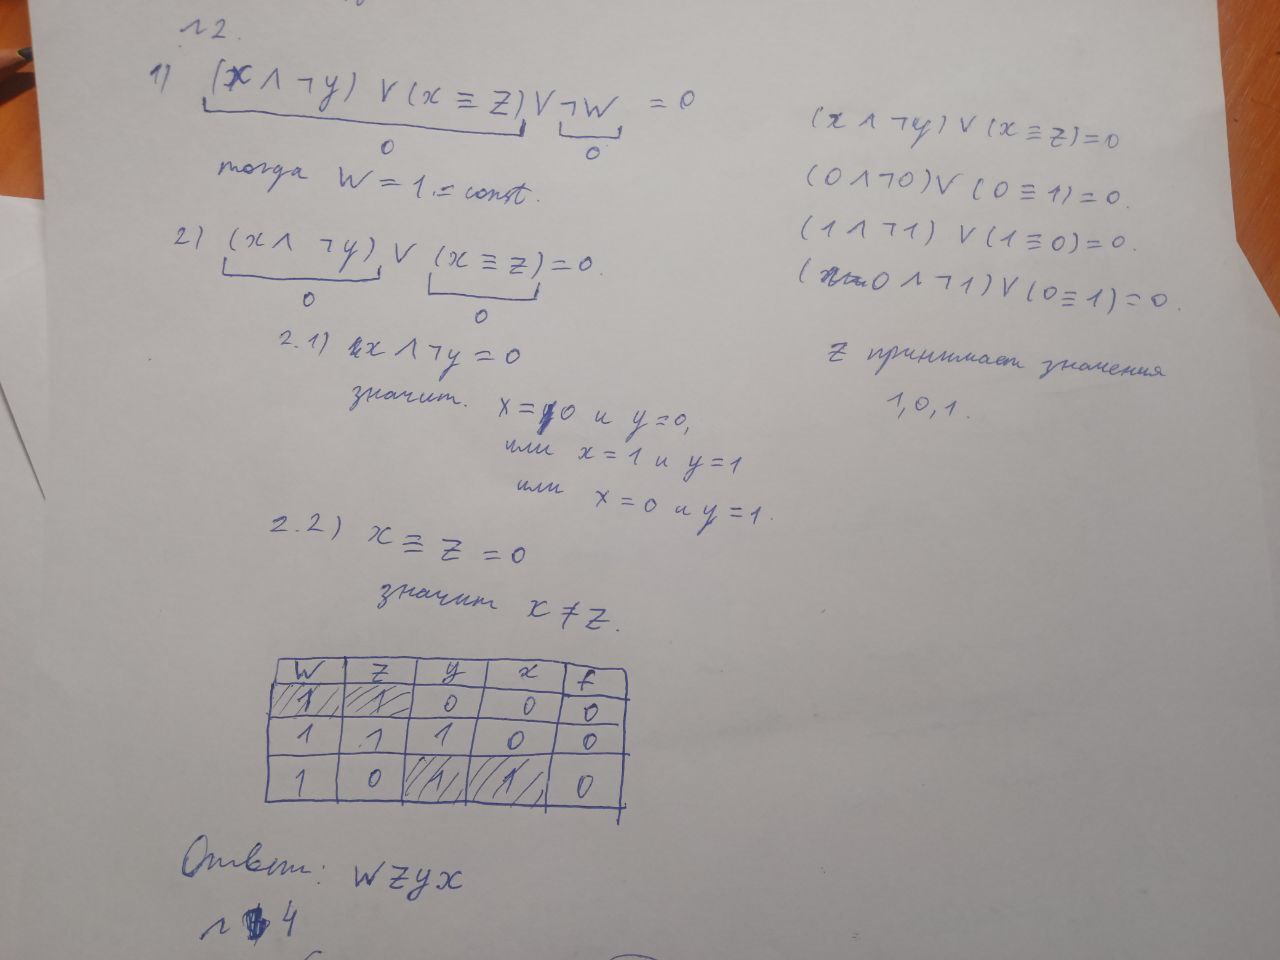 №2.
1) (x ∧ ¬y) ∨ (x ≡ z) ∨ ¬w = 0
0 0
тогда w = 1 = const.
2) (x ∧ ¬y) ∨ (x ≡ z) = 0.
0 0
2.1) x ∧ ¬y = 0
значит. x = 0 и y = 0,
или x = 1 и y = 1
или x = 0 и y = 1.
2.2) x ≡ z = 0
значит x ≠ z.
w z y x f
1 1 0 0 0
1 1 1 0 0
1 0 1 1 0
Ответ: w z y x
№ 4
(x ∧ ¬y) ∨ (x ≡ z) = 0
(0 ∧ ¬0) ∨ (0 ≡ 1) = 0.
(1 ∧ ¬1) ∨ (1 ≡ 0) = 0.
(0 ∧ ¬1) ∨ (0 ≡ 1) = 0.
z принимает значения
1, 0, 1.